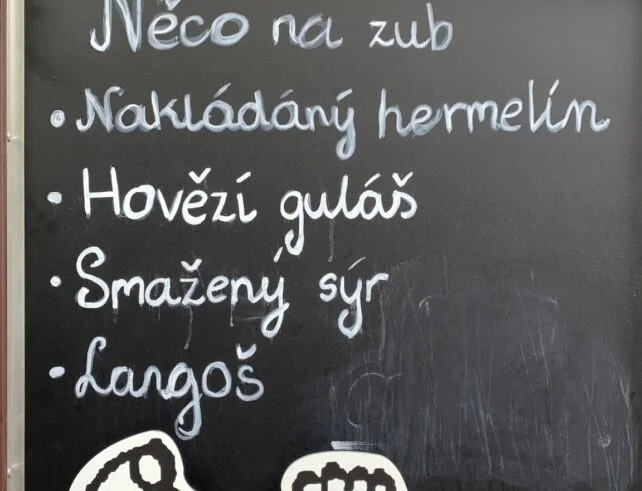 Něco na zub
• Nakládáný hermelín
• Hovězí guláš
• Smažený sýr
• Langoš